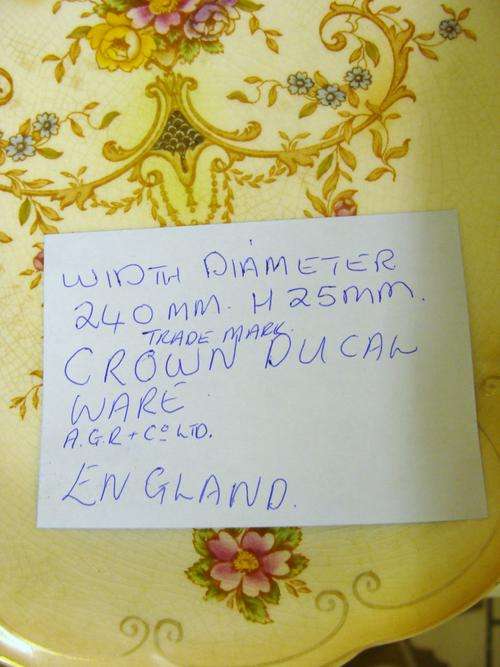 WIDTH DIAMETER
240 MM. H 25MM.
TRADE MARK.
CROWN DUCAL
WARE
A.G.R + Cº LTD.
ENGLAND.